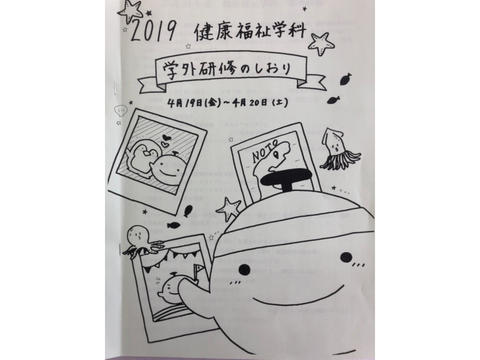 2019 健康福祉学科
学外研修のしおり
4月19日(金)～4月20日(土)
NOTO